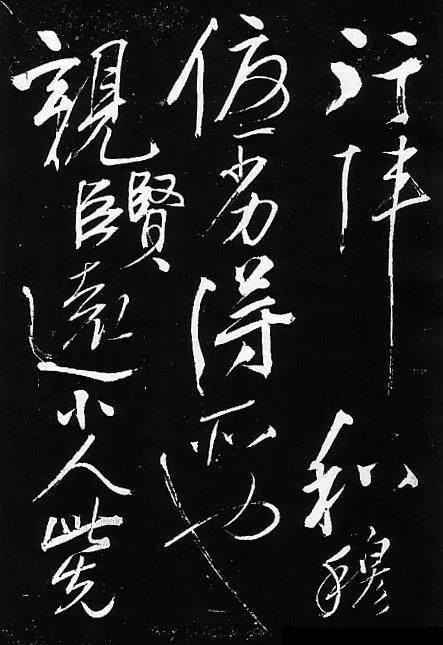 行陣和穆
優劣得所也
親賢臣遠小人此先